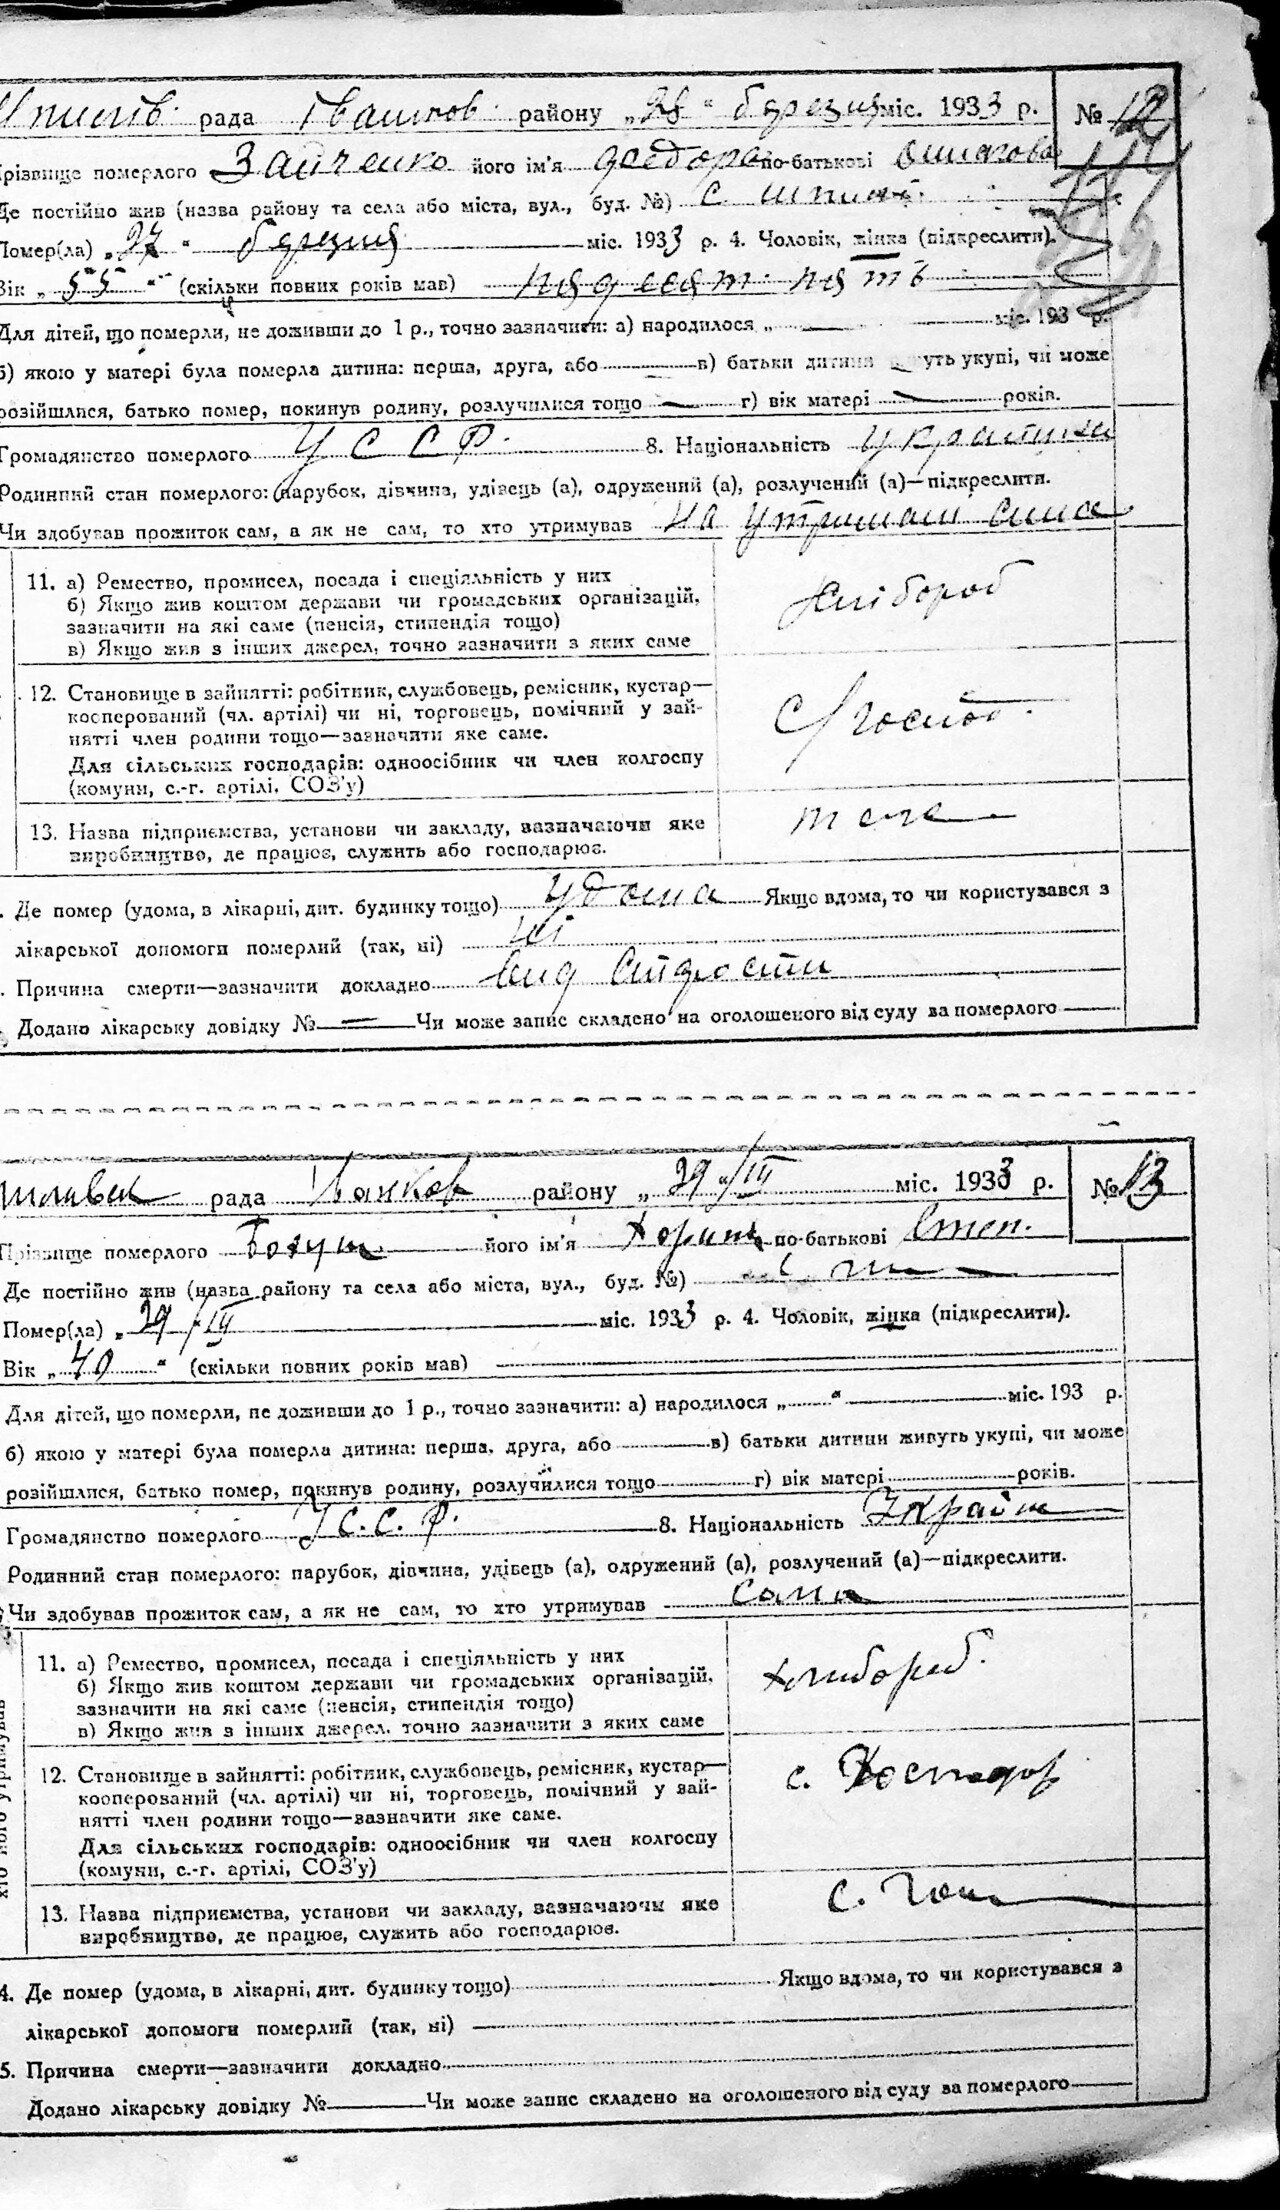 рада району „28“ березня міс. 1933 р. № 12
Прізвище померлого Зайченко його ім'я по-батькові
Де постійно жив (назва району та села або міста, вул., буд. №) с.
Помер(ла) „27“ березня міс. 1933 р. 4. Чоловік, жінка (підкреслити).
Вік „55“ (скільки повних років мав) пядесят пять
Для дітей, що померли, не доживши до 1 р., точно зазначити: а) народилося „ міс. 193 р.
б) якою у матері була померла дитина: перша, друга, або — в) батьки дитини живуть укупі, чи може
розійшлися, батько помер, покинув родину, розлучилися тощо — г) вік матері — років.
Громадянство померлого У С С Р. 8. Національність
Родинний стан померлого: парубок, дівчина, удівець (а), одружений (а), розлучений (а)—підкреслити.
Чи здобував прожиток сам, а як не сам, то хто утримував на сина
11. а) Ремество, промисел, посада і спеціяльність у них
б) Якщо жив коштом держави чи громадських організацій, зазначити на які саме (пенсія, стипендія тощо)
в) Якщо жив з інших джерел, точно зазначити з яких саме
Хлібороб
12. Становище в зайнятті: робітник, службовець, ремісник, кустар—
кооперований (чл. артілі) чи ні, торговець, помічний у зай-
нятті член родини тощо—зазначити яке саме.
Для сільських господарів: одноосібник чи член колгоспу
(комуни, с.-г. артілі, СОЗ'у)
с/господ.
13. Назва підприємства, установи чи закладу, зазначаючи яке
виробництво, де працює, служить або господарює.
Де помер (удома, в лікарні, дит. будинку тощо) удома Якщо вдома, то чи користувався з
лікарської допомоги померлий (так, ні) ні
Причина смерти—зазначити докладно
Додано лікарську довідку № — Чи може запис складено на оголошеного від суду за померлого —
рада Іванков району „29“/III міс. 1933 р. № 13
Прізвище померлого Богуш його ім'я по-батькові Степ.
Де постійно жив (назва району та села або міста, вул., буд. №)
Помер(ла) „29/III міс. 1933 р. 4. Чоловік, жінка (підкреслити).
Вік „40“ (скільки повних років мав) —
Для дітей, що померли, не доживши до 1 р., точно зазначити: а) народилося „ “ міс. 193 р.
б) якою у матері була померла дитина: перша, друга, або — в) батьки дитини живуть укупі, чи може
розійшлися, батько помер, покинув родину, розлучилися тощо — г) вік матері років.
Громадянство померлого У С. С. Р. 8. Національність
Родинний стан померлого: парубок, дівчина, удівець (а), одружений (а), розлучений (а)—підкреслити.
Чи здобував прожиток сам, а як не сам, то хто утримував сама
11. а) Ремество, промисел, посада і спеціяльність у них
б) Якщо жив коштом держави чи громадських організацій,
зазначити на які саме (пенсія, стипендія тощо)
в) Якщо жив з інших джерел, точно зазначити з яких саме
хлибороб.
12. Становище в зайнятті: робітник, службовець, ремісник, кустар—
кооперований (чл. артілі) чи ні, торговець, помічний у зай-
нятті член родини тощо—зазначити яке саме.
Для сільських господарів: одноосібник чи член колгоспу
(комуни, с.-г. артілі, СОЗ'у)
с. Господар
13. Назва підприємства, установи чи закладу, зазначаючи яке
виробництво, де працює, служить або господарює.
4. Де помер (удома, в лікарні, дит. будинку тощо) Якщо вдома, то чи користувався з
лікарської допомоги померлий (так, ні)
5. Причина смерти—зазначити докладно
Додано лікарську довідку № — Чи може запис складено на оголошеного від суду за померлого —